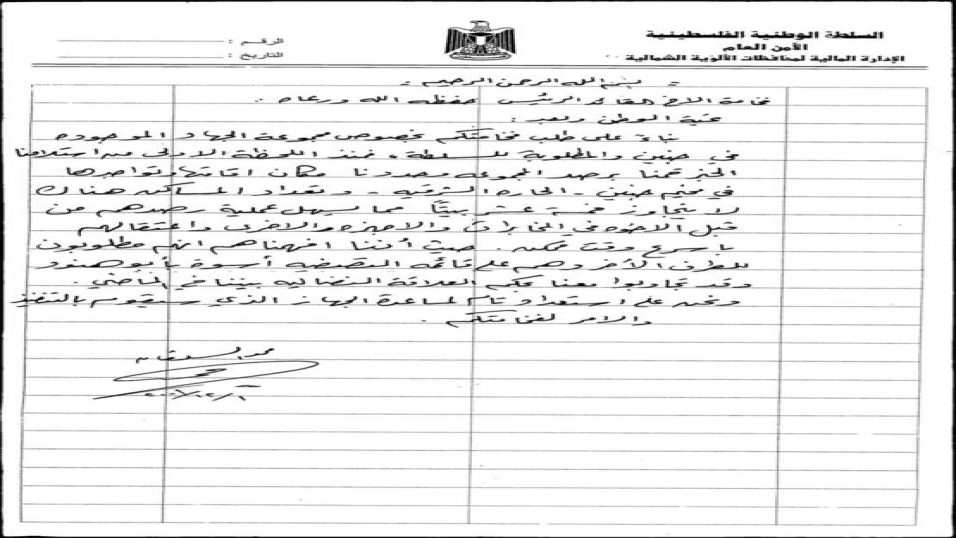 السلطة الوطنية الفلسطينية
الأمن العام
الإدارة المالية لمحافظات الألوية الشمالية
الرقم :
التاريخ :
بسم الله الرحمن الرحيم
فخامة الاخ القائد الرئيس حفظه الله ورعاه .
تحية الوطن وبعد :
بناءً على طلب فخامتكم بخصوص مجموعة الجهاد الموجوده
في جنين والمطلوبة للسلطة ، فمنذ اللحظة الاولى من استلامنا
الخبر قمنا برصد المجموعه وحددنا مكان اقامتها وتواجدها
في مخيم جنين - الحاره الشرقيه - وتعداد المساكن هناك
لا يتجاوز خمسة عشر بيتاً مما يسهل عملية رصدهم من
قبل الاخوه في المخابرات والاجهزه والاخرى واعتقالهم
باسرع وقت ممكن . حيث أننا افهمناهم انهم مطلوبون
للطرف الآخر وهم على قائمه التصفيه أسوة بأبو هنود
وقد تجاوبوا معنا بحكم العلاقة النضاليه بيننا في الماضي .
ونحن على استعداد تام لمساعدة الجهاز الذي سيقوم بالتنفيذ
والامر لفخامتكم .